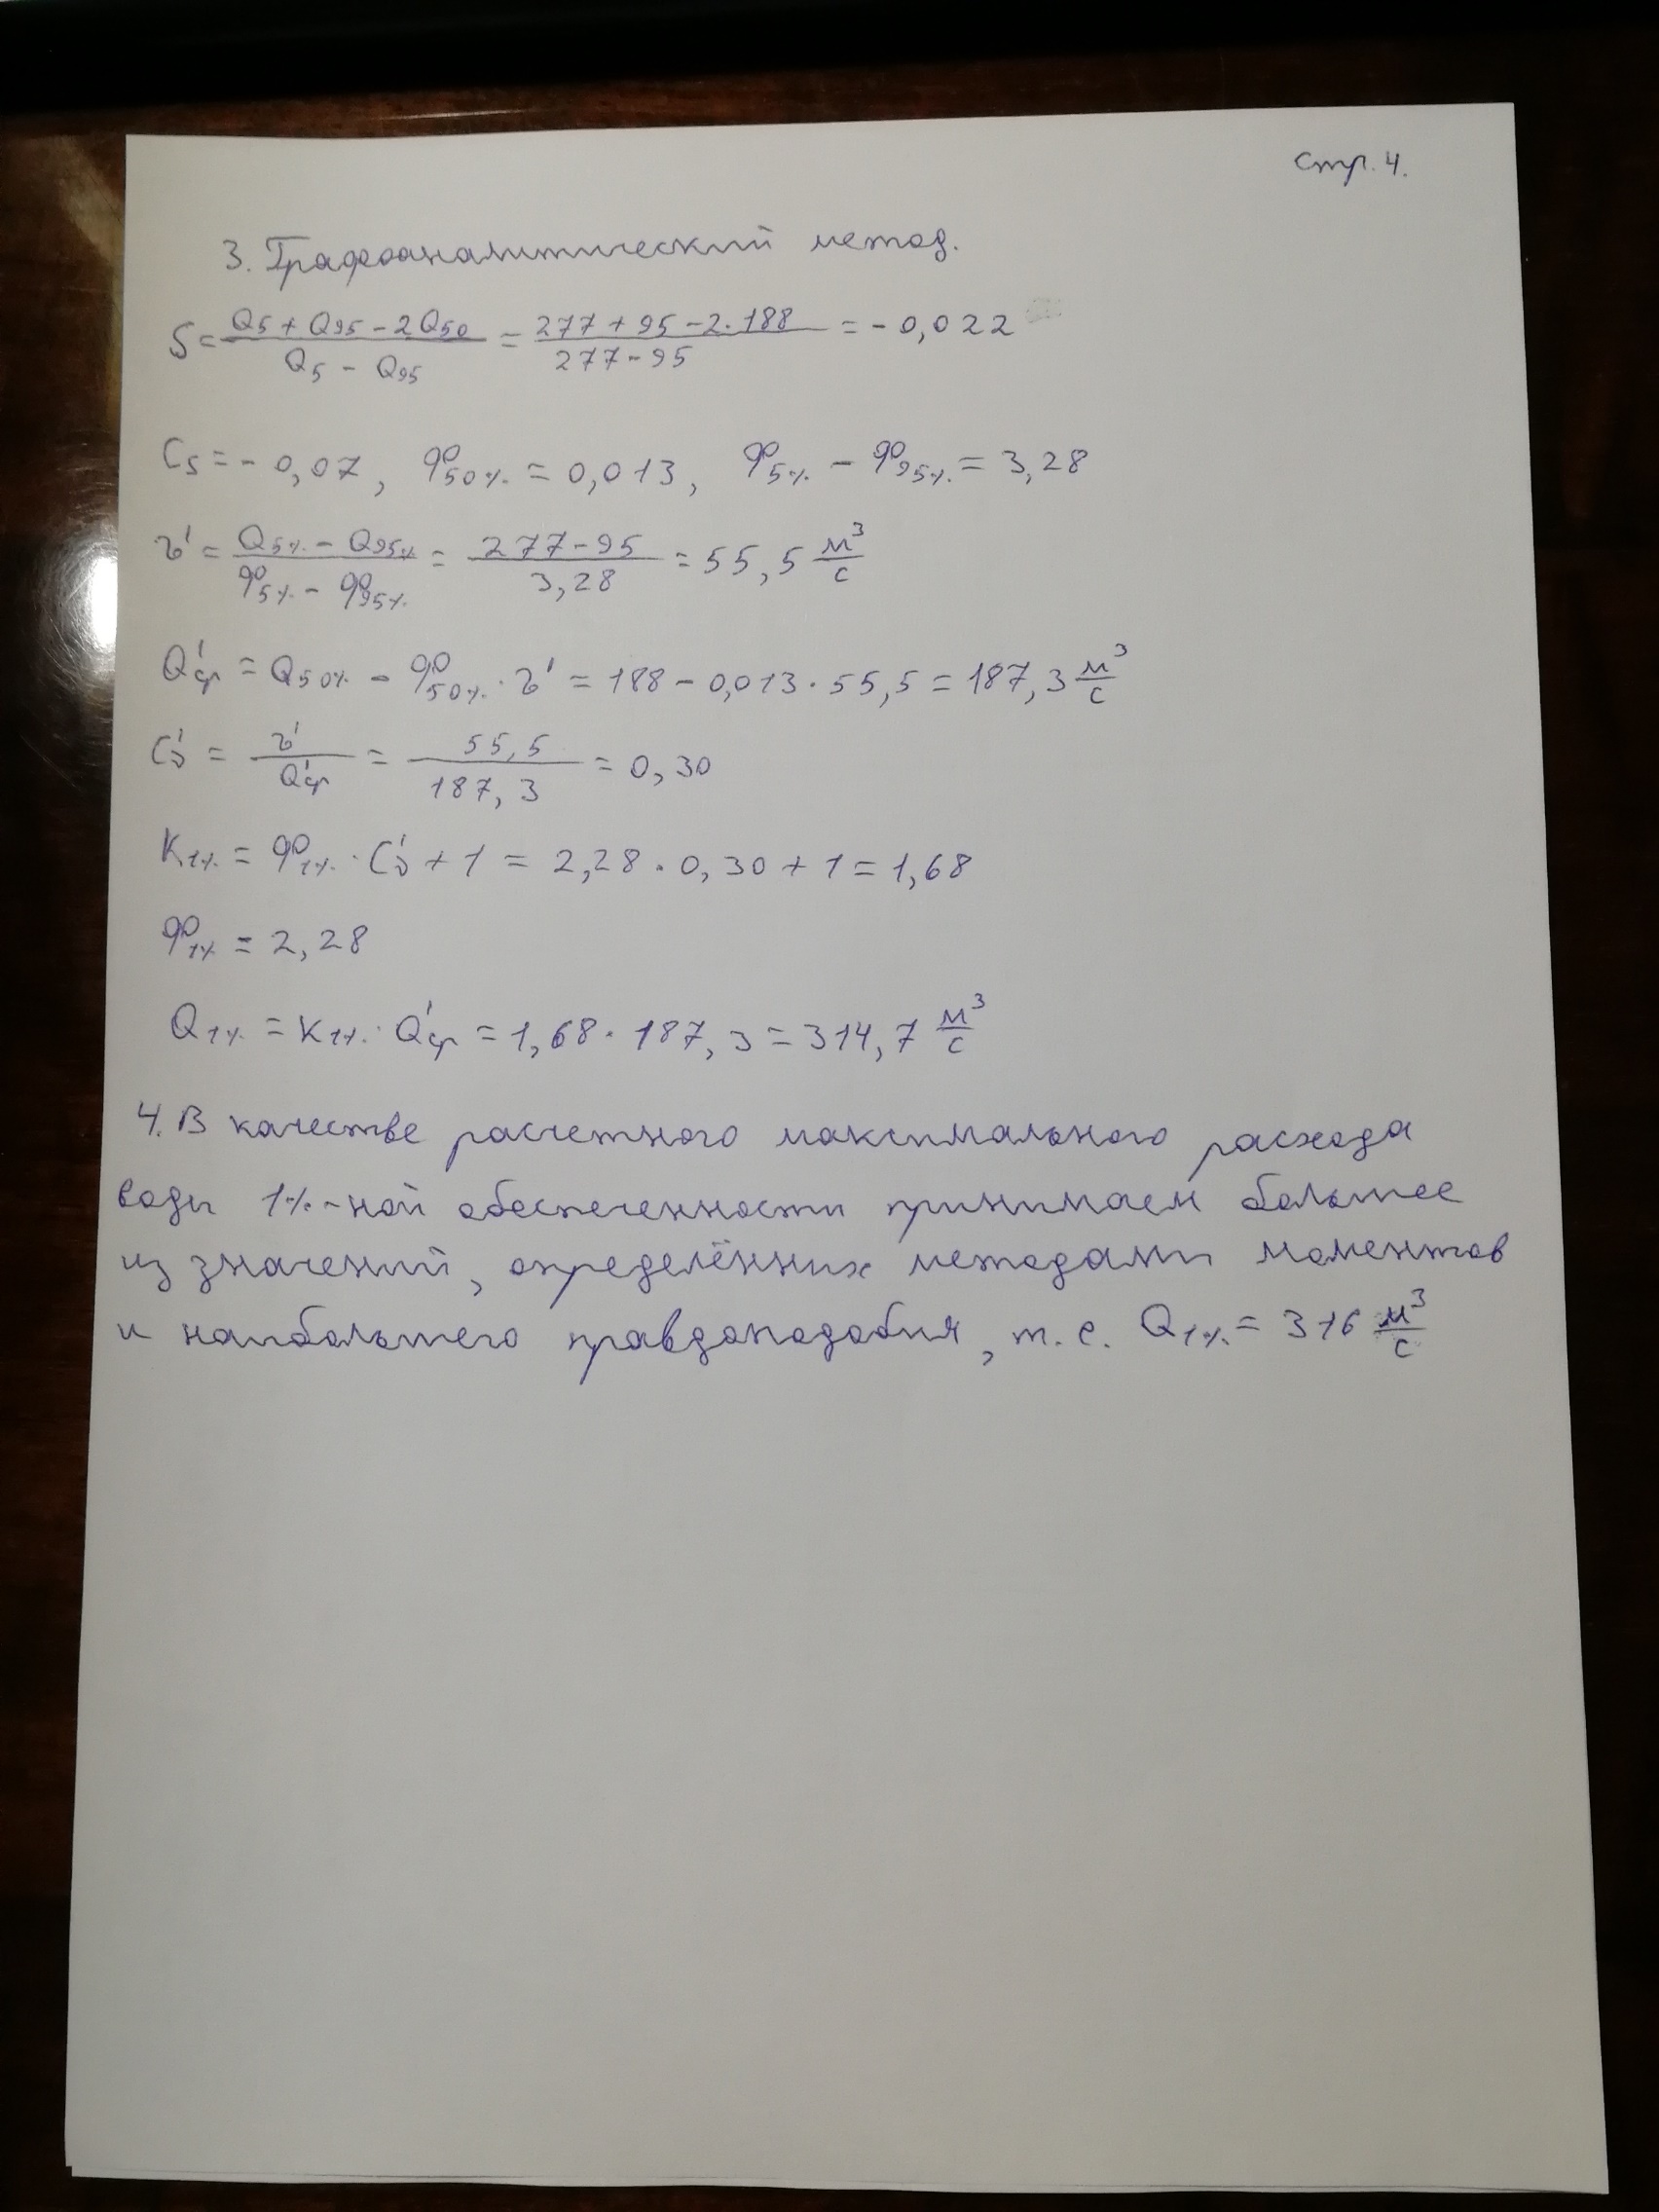 Стр. 4.
3. Графоаналитический метод.
S = (Q5 + Q95 - 2Q50) / (Q5 - Q95) = (277 + 95 - 2·188) / (277 - 95) = - 0,022
Cs = - 0,07, φ50% = 0,013, φ5% - φ95% = 3,28
σ' = (Q5% - Q95%) / (φ5% - φ95%) = (277 - 95) / 3,28 = 55,5 м³/с
Q'ср = Q50% - φ50% · σ' = 188 - 0,013 · 55,5 = 187,3 м³/с
C'v = σ' / Q'ср = 55,5 / 187,3 = 0,30
K1% = φ1% · C'v + 1 = 2,28 · 0,30 + 1 = 1,68
φ1% = 2,28
Q1% = K1% · Q'ср = 1,68 · 187,3 = 314,7 м³/с
4. В качестве расчетного максимального расхода
воды 1%-ной обеспеченности принимаем большее
из значений, определённых методами моментов
и наибольшего правдоподобия, т. е. Q1% = 316 м³/с